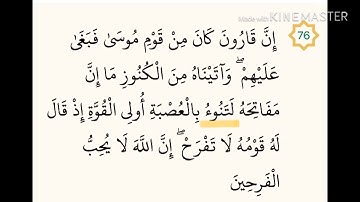 Made with KINEMASTER
76
إِنَّ قَارُونَ كَانَ مِنْ قَوْمِ مُوسَىٰ فَبَغَىٰ
عَلَيْهِمْ ۖ وَآتَيْنَاهُ مِنَ الْكُنُوزِ مَا إِنَّ
مَفَاتِحَهُ لَتَنُوءُ بِالْعُصْبَةِ أُولِي الْقُوَّةِ إِذْ قَالَ
لَهُ قَوْمُهُ لَا تَفْرَحْ ۖ إِنَّ اللَّهَ لَا يُحِبُّ
الْفَرِحِينَ